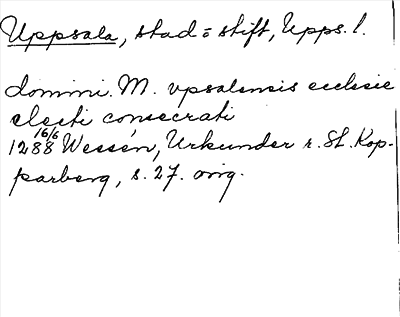 Uppsala, stad o stift, Upps. l.
domini. M. vpsalensis ecclesie
electi consecrati
1288 16/6 Wessén, Urkunder r. St. Kop-
parberg, s. 27. orig.